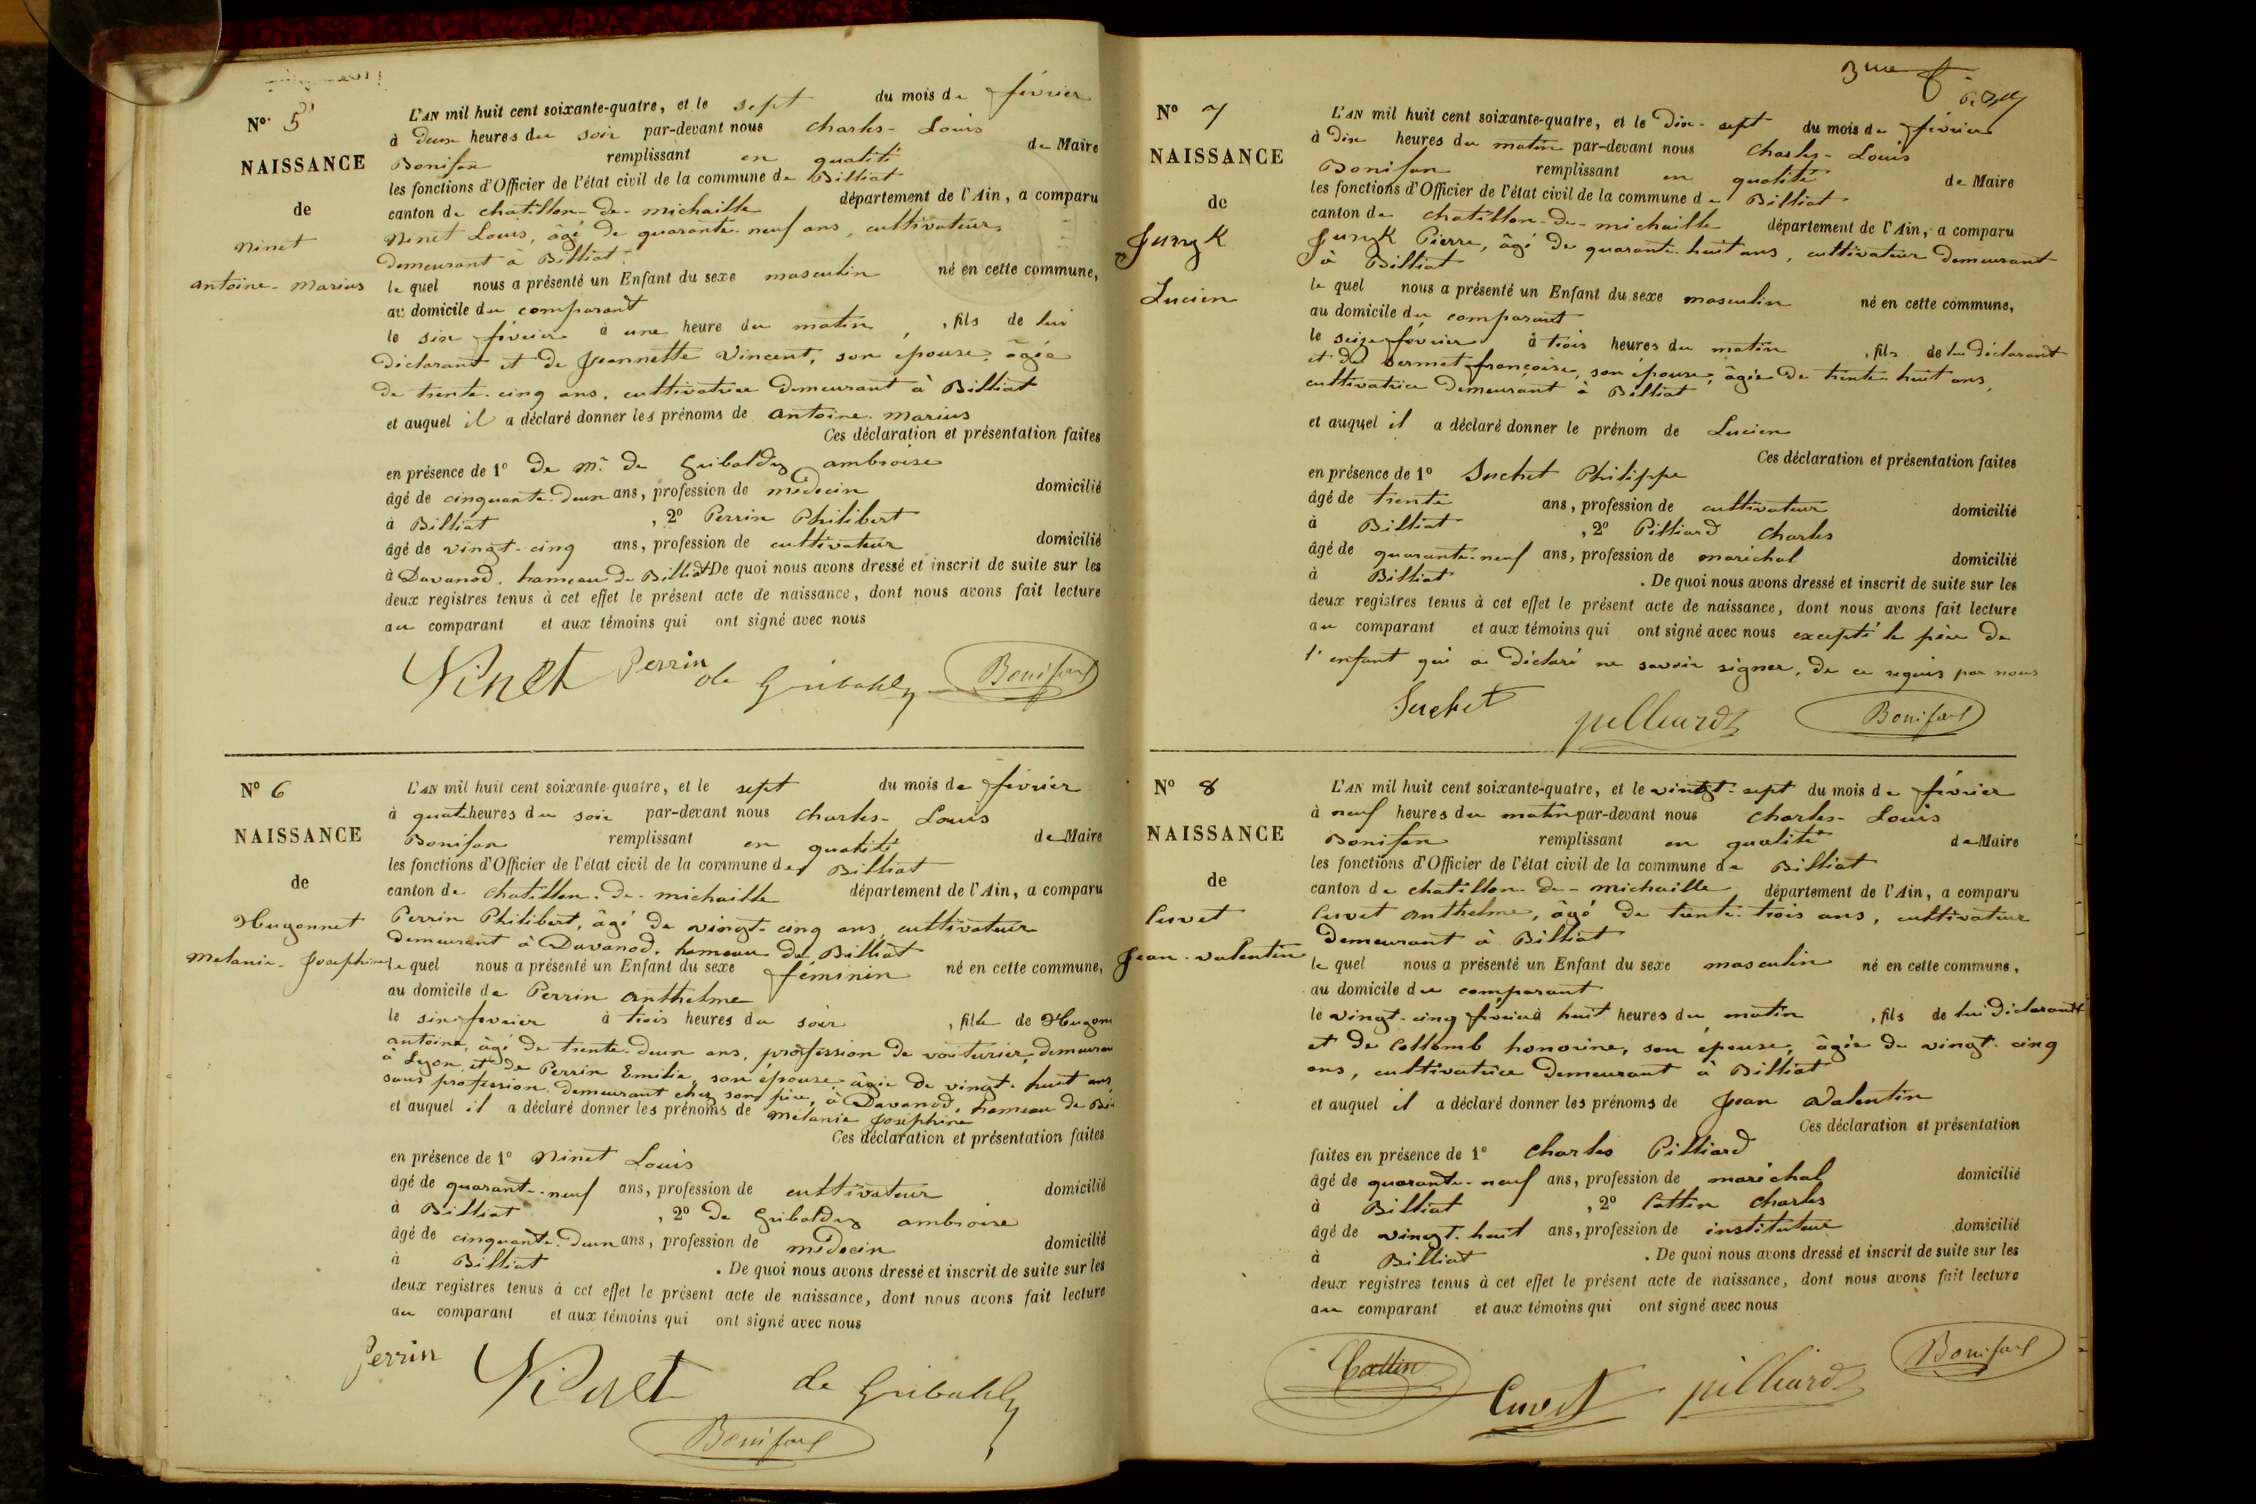 N° 5
NAISSANCE
de
Ninet
Antoine-Marius
L'AN mil huit cent soixante-quatre, et le sept du mois de février
à deux heures du soir par-devant nous Charles-Louis
Bonifax remplissant en qualité de Maire
les fonctions d'Officier de l'état civil de la commune de Billiat
canton de Chatillon-de-michaille département de l'Ain, a comparu
Ninet Louis, âgé de quarante-neuf ans, cultivateur,
demeurant à Billiat
le quel nous a présenté un Enfant du sexe masculin né en cette commune,
au domicile du comparant
le six février à une heure du matin, fils de lui
déclarant et de Jeannette Vincent, son épouse, âgée
de trente-cinq ans, cultivatrice demeurant à Billiat
et auquel il a déclaré donner les prénoms de Antoine-Marius
Ces déclaration et présentation faites
en présence de 1° de Mr de Gribaldy ambroise
âgé de cinquante-deux ans, profession de médecin domicilié
à Billiat , 2° Perrin Philibert
âgé de vingt-cinq ans, profession de cultivateur domicilié
à Davanod, hameau de Billiat De quoi nous avons dressé et inscrit de suite sur les
deux registres tenus à cet effet le présent acte de naissance, dont nous avons fait lecture
au comparant et aux témoins qui ont signé avec nous
Ninet Perrin de Gribaldy
N° 6
NAISSANCE
de
Hugonnet
Mélanie-Joséphine
L'AN mil huit cent soixante-quatre, et le sept du mois de février
à quatre heures du soir par-devant nous Charles-Louis
Bonifax remplissant en qualité de Maire
les fonctions d'Officier de l'état civil de la commune de Billiat
canton de Chatillon-de-michaille département de l'Ain, a comparu
Perrin Philibert, âgé de vingt-cinq ans, cultivateur
demeurant à Davanod, hameau de Billiat
le quel nous a présenté un Enfant du sexe féminin né en cette commune,
au domicile de Perrin Anthelme
le six février à trois heures du soir , fille de Hugon
antoine, âgé de trente-deux ans, profession de voiturier, demeuran
à Lyon, et de Perrin Emilie, son épouse âgée de vingt-huit ans
sans profession demeurant chez son père, à Davanod, hameau de Bi
et auquel il a déclaré donner les prénoms de Mélanie Joséphine
Ces déclaration et présentation faites
en présence de 1° Ninet Louis
âgé de quarante-neuf ans, profession de cultivateur domicilié
à Billiat , 2° de Gribaldy ambroise
âgé de cinquante-deux ans, profession de médecin domicilié
à Billiat . De quoi nous avons dressé et inscrit de suite sur les
deux registres tenus à cet effet le présent acte de naissance, dont nous avons fait lecture
au comparant et aux témoins qui ont signé avec nous
Perrin Ninet de Gribaldy
3me
N° 7
NAISSANCE
de
Jungk
Lucien
L'AN mil huit cent soixante-quatre, et le dix-sept du mois de février
à dix heures du matin par-devant nous Charles-Louis
Bonifax remplissant en qualité de Maire
les fonctions d'Officier de l'état civil de la commune de Billiat
canton de Chatillon-de-michaille département de l'Ain, a comparu
Jungk Pierre, âgé de quarante-huit ans, cultivateur demeurant
à Billiat
le quel nous a présenté un Enfant du sexe masculin né en cette commune,
au domicile du comparant
le seize février à trois heures du matin , fils de lui déclarant
et de Sermet françoise, son épouse, âgée de trente-huit ans,
cultivatrice demeurant à Billiat
et auquel il a déclaré donner le prénom de Lucien
Ces déclaration et présentation faites
en présence de 1° Suchet Philippe
âgé de trente ans, profession de cultivateur domicilié
à Billiat , 2° Pilliard Charles
âgé de quarante-neuf ans, profession de maréchal domicilié
à Billiat . De quoi nous avons dressé et inscrit de suite sur les
deux registres tenus à cet effet le présent acte de naissance, dont nous avons fait lecture
au comparant et aux témoins qui ont signé avec nous excepté le père de
l'enfant qui a déclaré ne savoir signer, de ce requis par nous
Suchet pilliard
N° 8
NAISSANCE
de
Cuvet
Jean-Valentin
L'AN mil huit cent soixante-quatre, et le vingt-sept du mois de février
à neuf heures du matin par-devant nous Charles-Louis
Bonifax remplissant en qualité de Maire
les fonctions d'Officier de l'état civil de la commune de Billiat
canton de Chatillon-de-michaille département de l'Ain, a comparu
Cuvet Anthelme, âgé de trente-trois ans, cultivateur
demeurant à Billiat
le quel nous a présenté un Enfant du sexe masculin né en cette commune,
au domicile du comparant
le vingt-cinq février à huit heures du matin , fils de lui déclarant
et de Collomb honorine, son épouse, âgée de vingt-cinq
ans, cultivatrice demeurant à Billiat
et auquel il a déclaré donner les prénoms de Jean Valentin
Ces déclaration et présentation
faites en présence de 1° Charles Pilliard
âgé de quarante-neuf ans, profession de maréchal domicilié
à Billiat , 2° Cattin Charles
âgé de vingt-huit ans, profession de instituteur domicilié
à Billiat . De quoi nous avons dressé et inscrit de suite sur les
deux registres tenus à cet effet le présent acte de naissance, dont nous avons fait lecture
au comparant et aux témoins qui ont signé avec nous
Cattin Cuvet pilliard